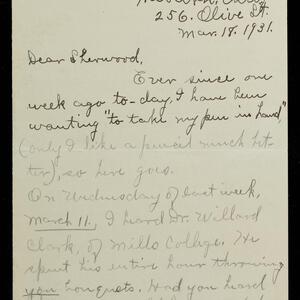 256. Olive St.
Mar. 18. 1931.
Dear Sherwood,
Ever since one
week ago to-day, I have been
wanting "to take my pen in hand",
(only I like a pencil much bet-
ter), so here goes.
On Wednesday of last week,
March 11, I heard Dr. Willard
Clark, of Mills College. He
spent his entire hour throwing
you bouquets. Had you heard